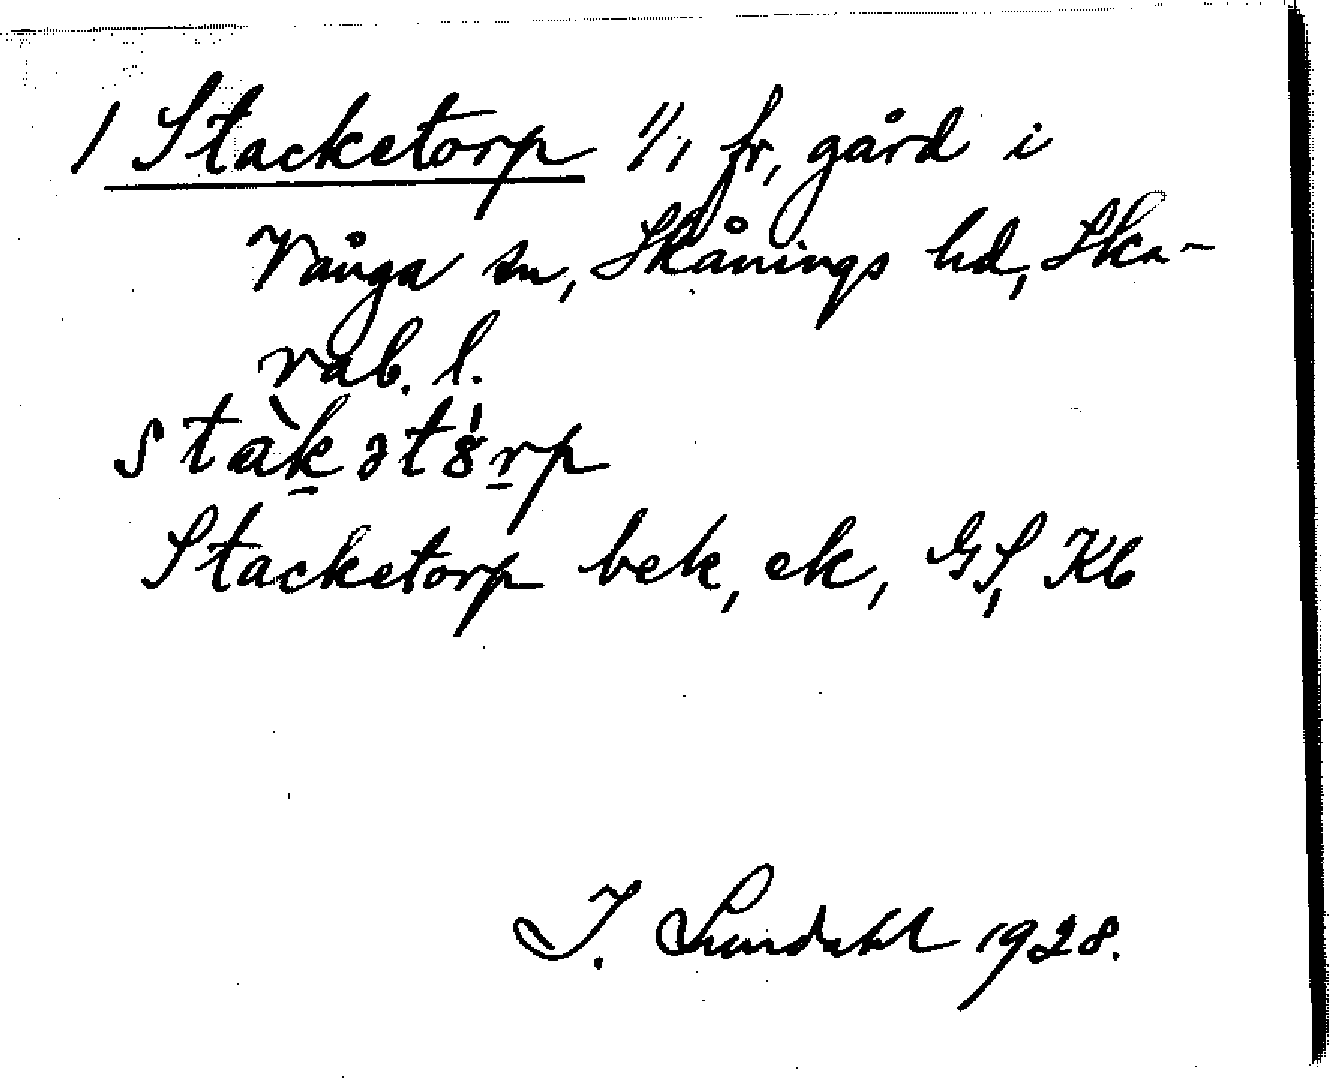 / Stacketorp 1/1 fr, gård i
Vånga sn, Skånings hd, Ska-
rab. l.
stàk̲ət8̍r̲p
Stacketorp bek, ek, GS, Kb
I. Lundahl 1928.